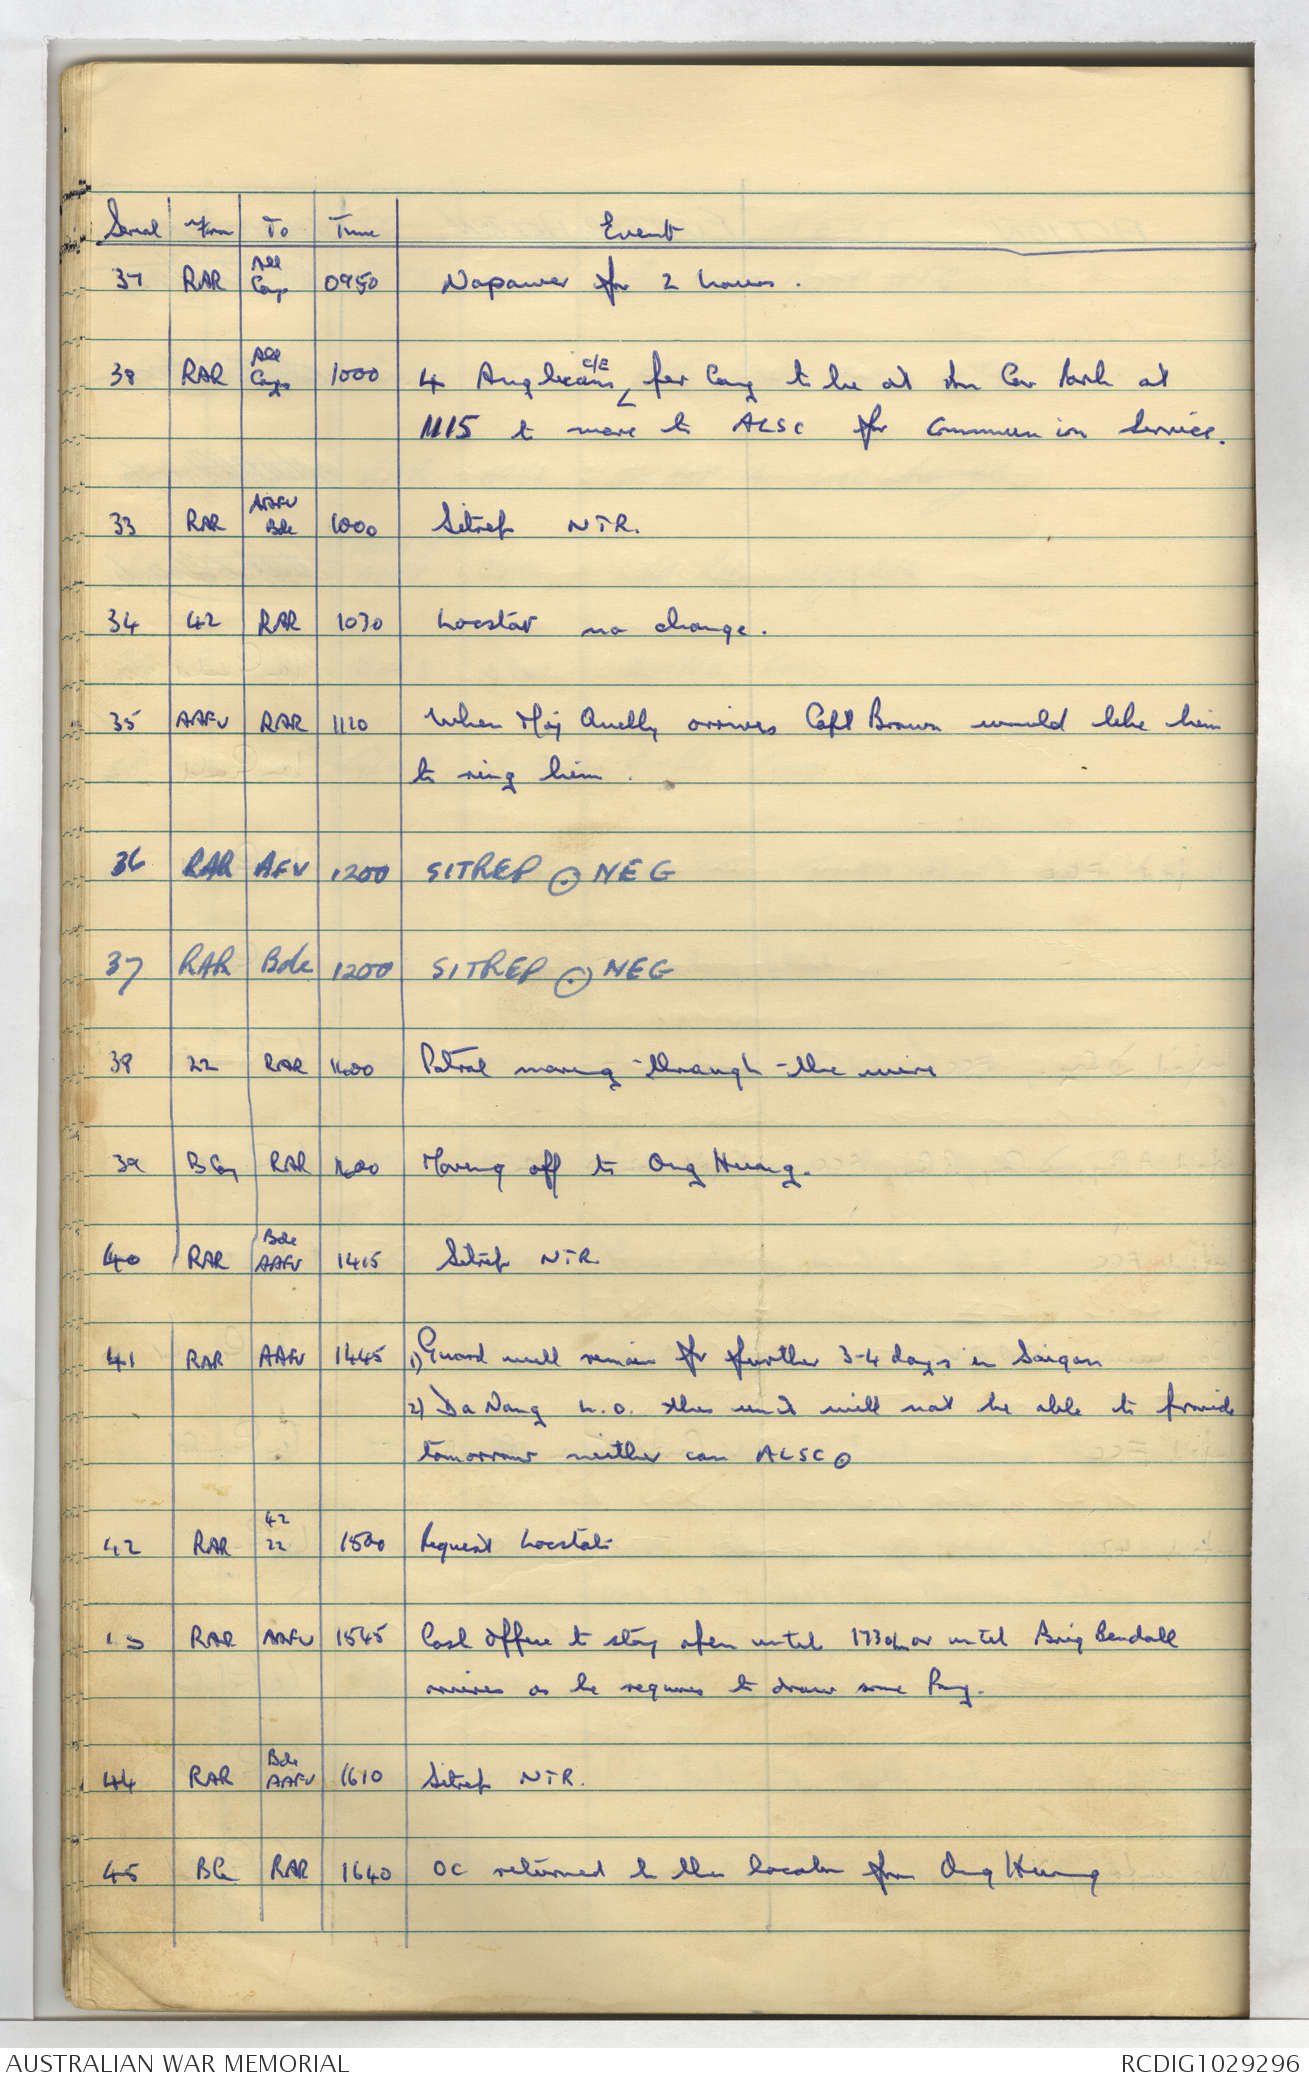 Serial From To Time Event
37 RAR All Coys 0950 No power for 2 hours.
38 RAR All Coys 1000 4 Anglicans C/E per Coy to be at Car Park at
1115 to move to ALSC for Communion Service.
33 RAR AAFV Bde 1000 Sitrep NTR.
34 42 RAR 1030 Locstat no change.
35 AAFV RAR 1120 When Maj Quelly arrives Capt Brown would like him
to ring him.
36 RAR AFV 1200 SITREP ⊙ NEG
37 RAR Bde 1200 SITREP ⊙ NEG
38 22 RAR Patrol moving through the wire
39 B Coy RAR Moving off to Ong Huong.
40 RAR Bde AAFV 1415 Sitrep NTR.
41 RAR AAFV 1445 1) Guard will remain for further 3-4 days in Saigon
2) Da Nang L.O. this unit will not be able to provide
tomorrow neither can ALSC ⊙
42 RAR 42 22 1500 Request Locstats
RAR AAFV 1545 Cash Office to stay open until 1730h or until Brig Bendall
arrives as he requires to draw some Pay.
44 RAR Bde AAFV 1610 Sitrep NTR.
45 B Co RAR 1640 OC returned to this location from Ong Huong
AUSTRALIAN WAR MEMORIAL RCDIG1029296